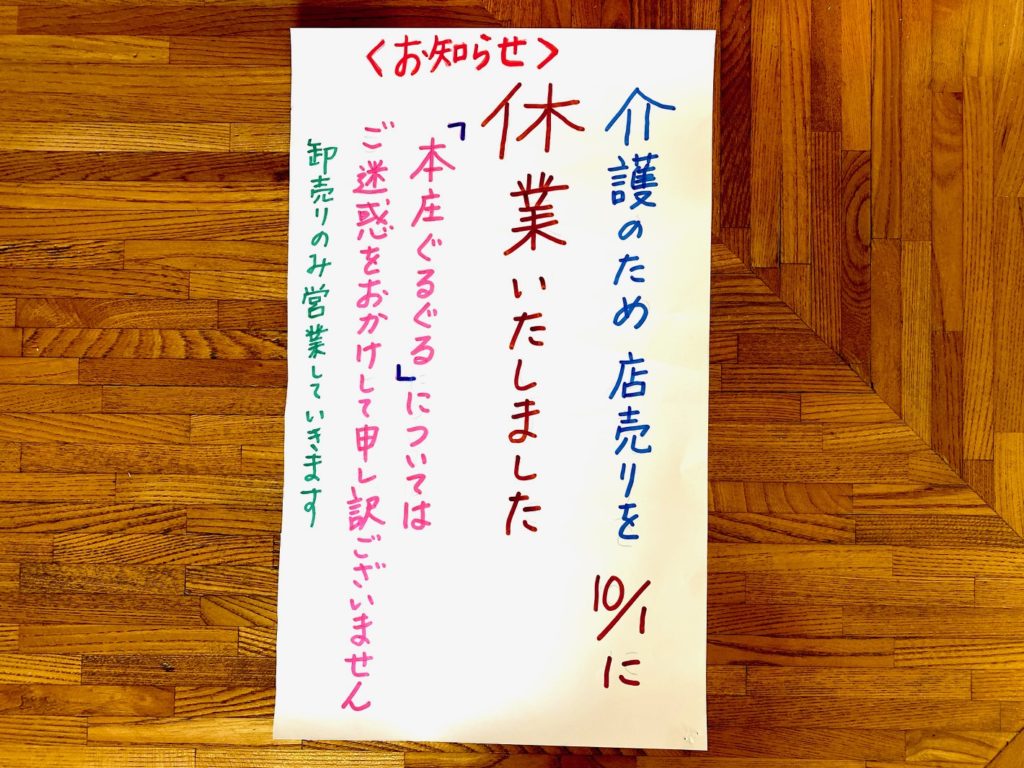 〈お知らせ〉
介護のため店売りを10/1に
休業いたしました
「本庄ぐるぐる」については
ご迷惑をおかけして申し訳ございません
卸売りのみ営業していきます